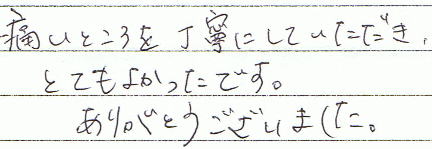 痛いところを丁寧にしていただき、
とてもよかったです。
ありがとうございました。